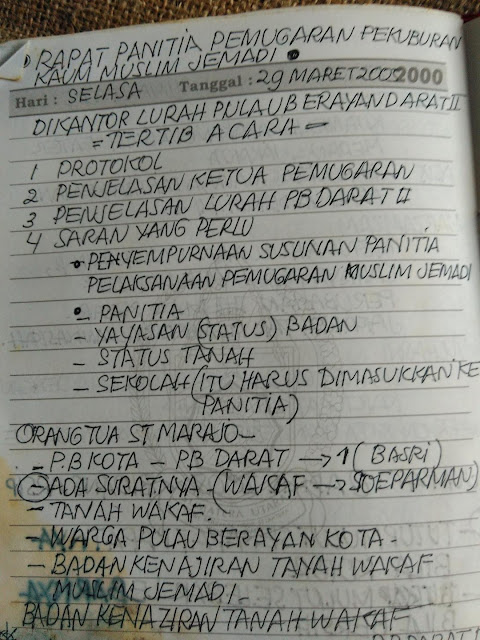 RAPAT PANITIA PEMUGARAN PEKUBURAN
KAUM MUSLIM JEMADI
Hari : SELASA Tanggal : 29 MARET 2005 2000
DIKANTOR LURAH PULAU BERAYAN DARAT II
= TERTIB ACARA -
1 PROTOKOL
2 PENJELASAN KETUA PEMUGARAN
3 PENJELASAN LURAH PB DARAT II
4 SARAN YANG PERLU
• PENYEMPURNAAN SUSUNAN PANITIA
PELAKSANAAN PEMUGARAN MUSLIM JEMADI
• - PANITIA
- YAYASAN (STATUS) BADAN
- STATUS TANAH
- SEKOLAH (ITU HARUS DIMASUKKAN KE
PANITIA)
ORANG TUA ST MARAJO -
- P.B KOTA - PB DARAT → 1 (BASRI)
- ADA SURATNYA - (WAKAF → SOEPARMAN)
- TANAH WAKAF.
- WARGA PULAU BERAYAN KOTA -
- BADAN KENAJIRAN TANAH WAKAF
- MUSLIM JEMADI -
BADAN KENAZIRAN TANAH WAKAF